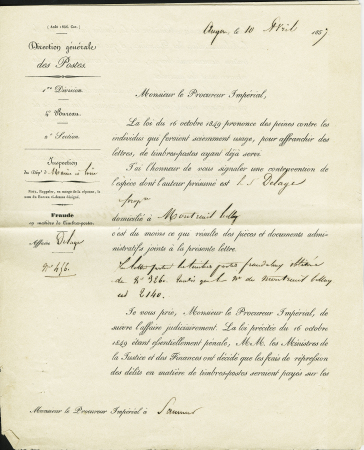 (Août 1856. Cor.)
Direction générale
des Postes.
1ère Division.
4e Bureau.
2e Section.
Inspection
du Dépt de Maine et Loire
Fraude
en matière de timbres-postes.
Affaire Delage
No 456.
Angers, le 10 Avril 1857
Monsieur le Procureur Impérial,
La loi du 16 octobre 1849 prononce des peines contre les
individus qui feraient sciemment usage, pour affranchir des
lettres, de timbres-postes ayant déjà servi.
J'ai l'honneur de vous signaler une contravention de
l'espèce dont l'auteur présumé est Delage
domicilié à Montreuil Bellay
c'est du moins ce qui résulte des pièces et documents admi-
nistratifs joints à la présente lettre.
La lettre porte le timbre-poste frauduleux
de No 326. tandis que le No de Montreuil Bellay
est 2140.
Je vous prie, Monsieur le Procureur Impérial, de
suivre l'affaire judiciairement. La loi précitée du 16 octobre
1849 étant essentiellement pénale, M.M. les Ministres de
la Justice et des Finances ont décidé que les frais de répression
des délits en matière de timbres-postes seraient payés sur les
Monsieur le Procureur Impérial à Saumur